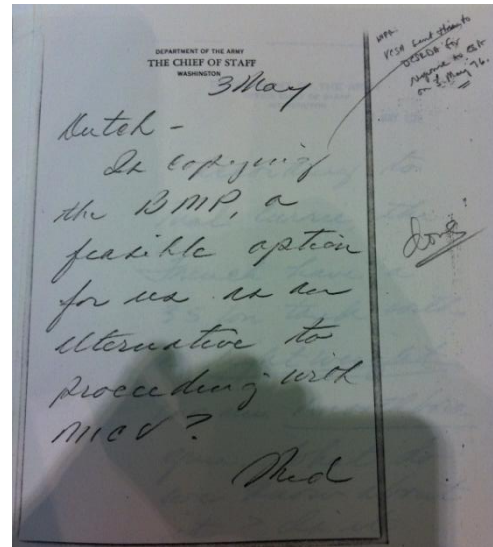 DEPARTMENT OF THE ARMY
THE CHIEF OF STAFF
WASHINGTON
3 May
Dutch -
Is copying
the BMP, a
feasible option
for us as an
alternative to
proceeding with
MICV?
VCSA sent this to
DCSRDA for
response to CSA
on May 76.
done